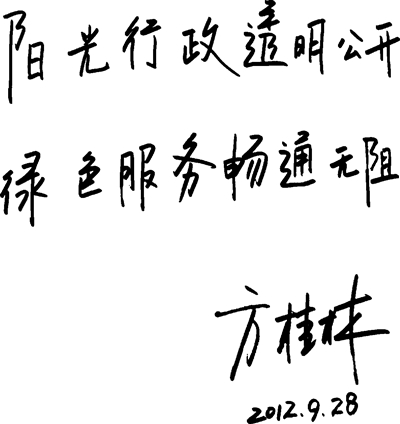 阳光行政透明公开
绿色服务畅通无阻
方桂林
2012.9.28